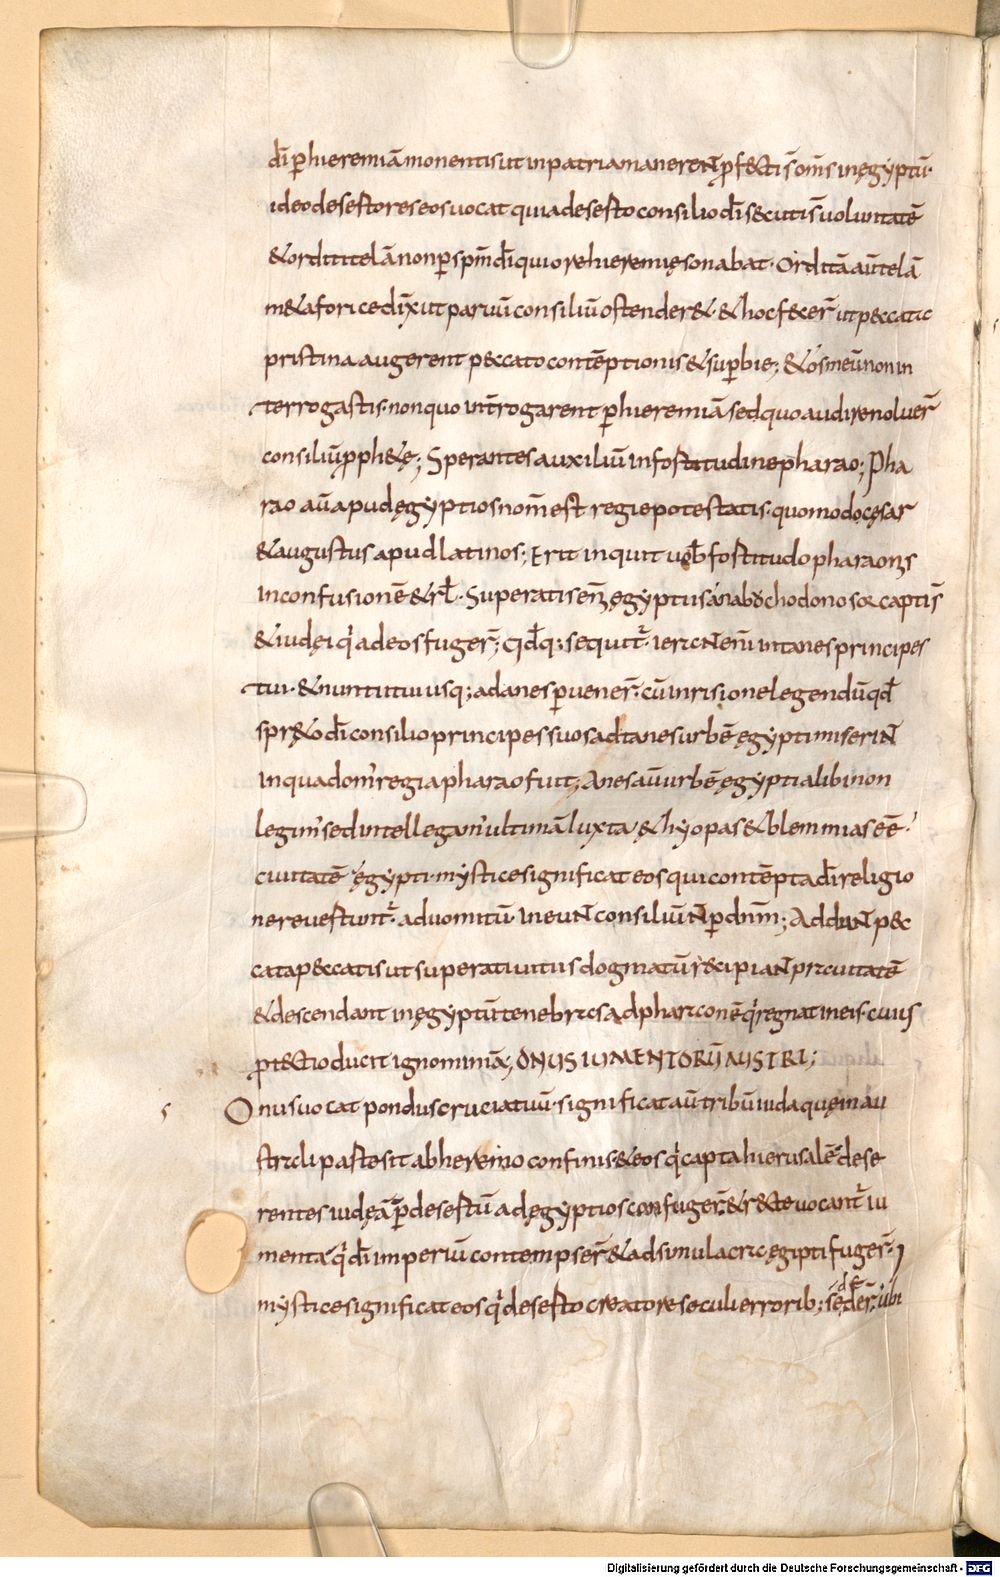 dī perhieremiā monentis ut inpatria maneren̄t profecti s̄ om̄s inęgẏptū·
ideo desertores eos vocat quia deserto consilio dī secuti s̄ voluntatē
& orditi telā non per spm̄ dī qui ore hieremię sonabat· Orditā aūtelā
m&aforice dixit parvū consiliū ostender&· & hoc fecer̄ ut peccatis
pristina augerent peccato contēptionis & superbie; & os meū non in
terrogastis· non quo int̄rogarent perhieremiā sed quo audire noluer̄
consiliū proph&ę; Sperantes auxiliū in fortitudine pharao; Pha
rao aū apud ęgyptios nom̄ est regie potestatis· quomodo cęsar
& augustus apud latinos; Erit inquit vob̄ fortitudo pharaonis
in confusionē & rl̄· Superatis eni ęgyptus a nabuchodonosor captis̄
& iudęi qui ad eos fuger̄; Qd̄q; sequitur· ierant eni in tanes principes
tui· & nuntii tui usq; ad anes pervener̄· cū inrisione legendū qd̄
spr&o dī consilio principes suos ad tanes urbē ęgypti miserint
in qua domus regia pharao fuit; Anes aū urbē ęgypti alibi non
legimus sed intellegamus ultimā iuxta &hyopas & blemmias eē
civitatē ęgypti· mẏstice significat eos qui contēpta dī religio
ne revertuntur· ad vomitū· Ineunt consiliū n̄ per dn̄m; Addunt pec
cata peccatis ut superati vitiis dogmatū recipiant pravitatē
& descendant in ęgyptū tenebras ad pharaonē qui regnat in eis· cuius
protectio ducit ignominiā; ONUS IUMENTORŪ AUSTRI;
Onus vocat pondus cruciatuū· significat aū tribū iuda quę in au
strali parte sit ab heremo confinis· & eos qui capta hierusalē dese
rentes iudęā per desertū ad ęgyptios confuger̄· & recte vocantur iu
menta qui dī imperiū contempser̄ & ad simulacra ęgipti fuger̄·
mẏstice significat eos qui deserto creatore seculi errorib; se deder̄· ubi
Digitalisierung gefördert durch die Deutsche Forschungsgemeinschaft - DFG